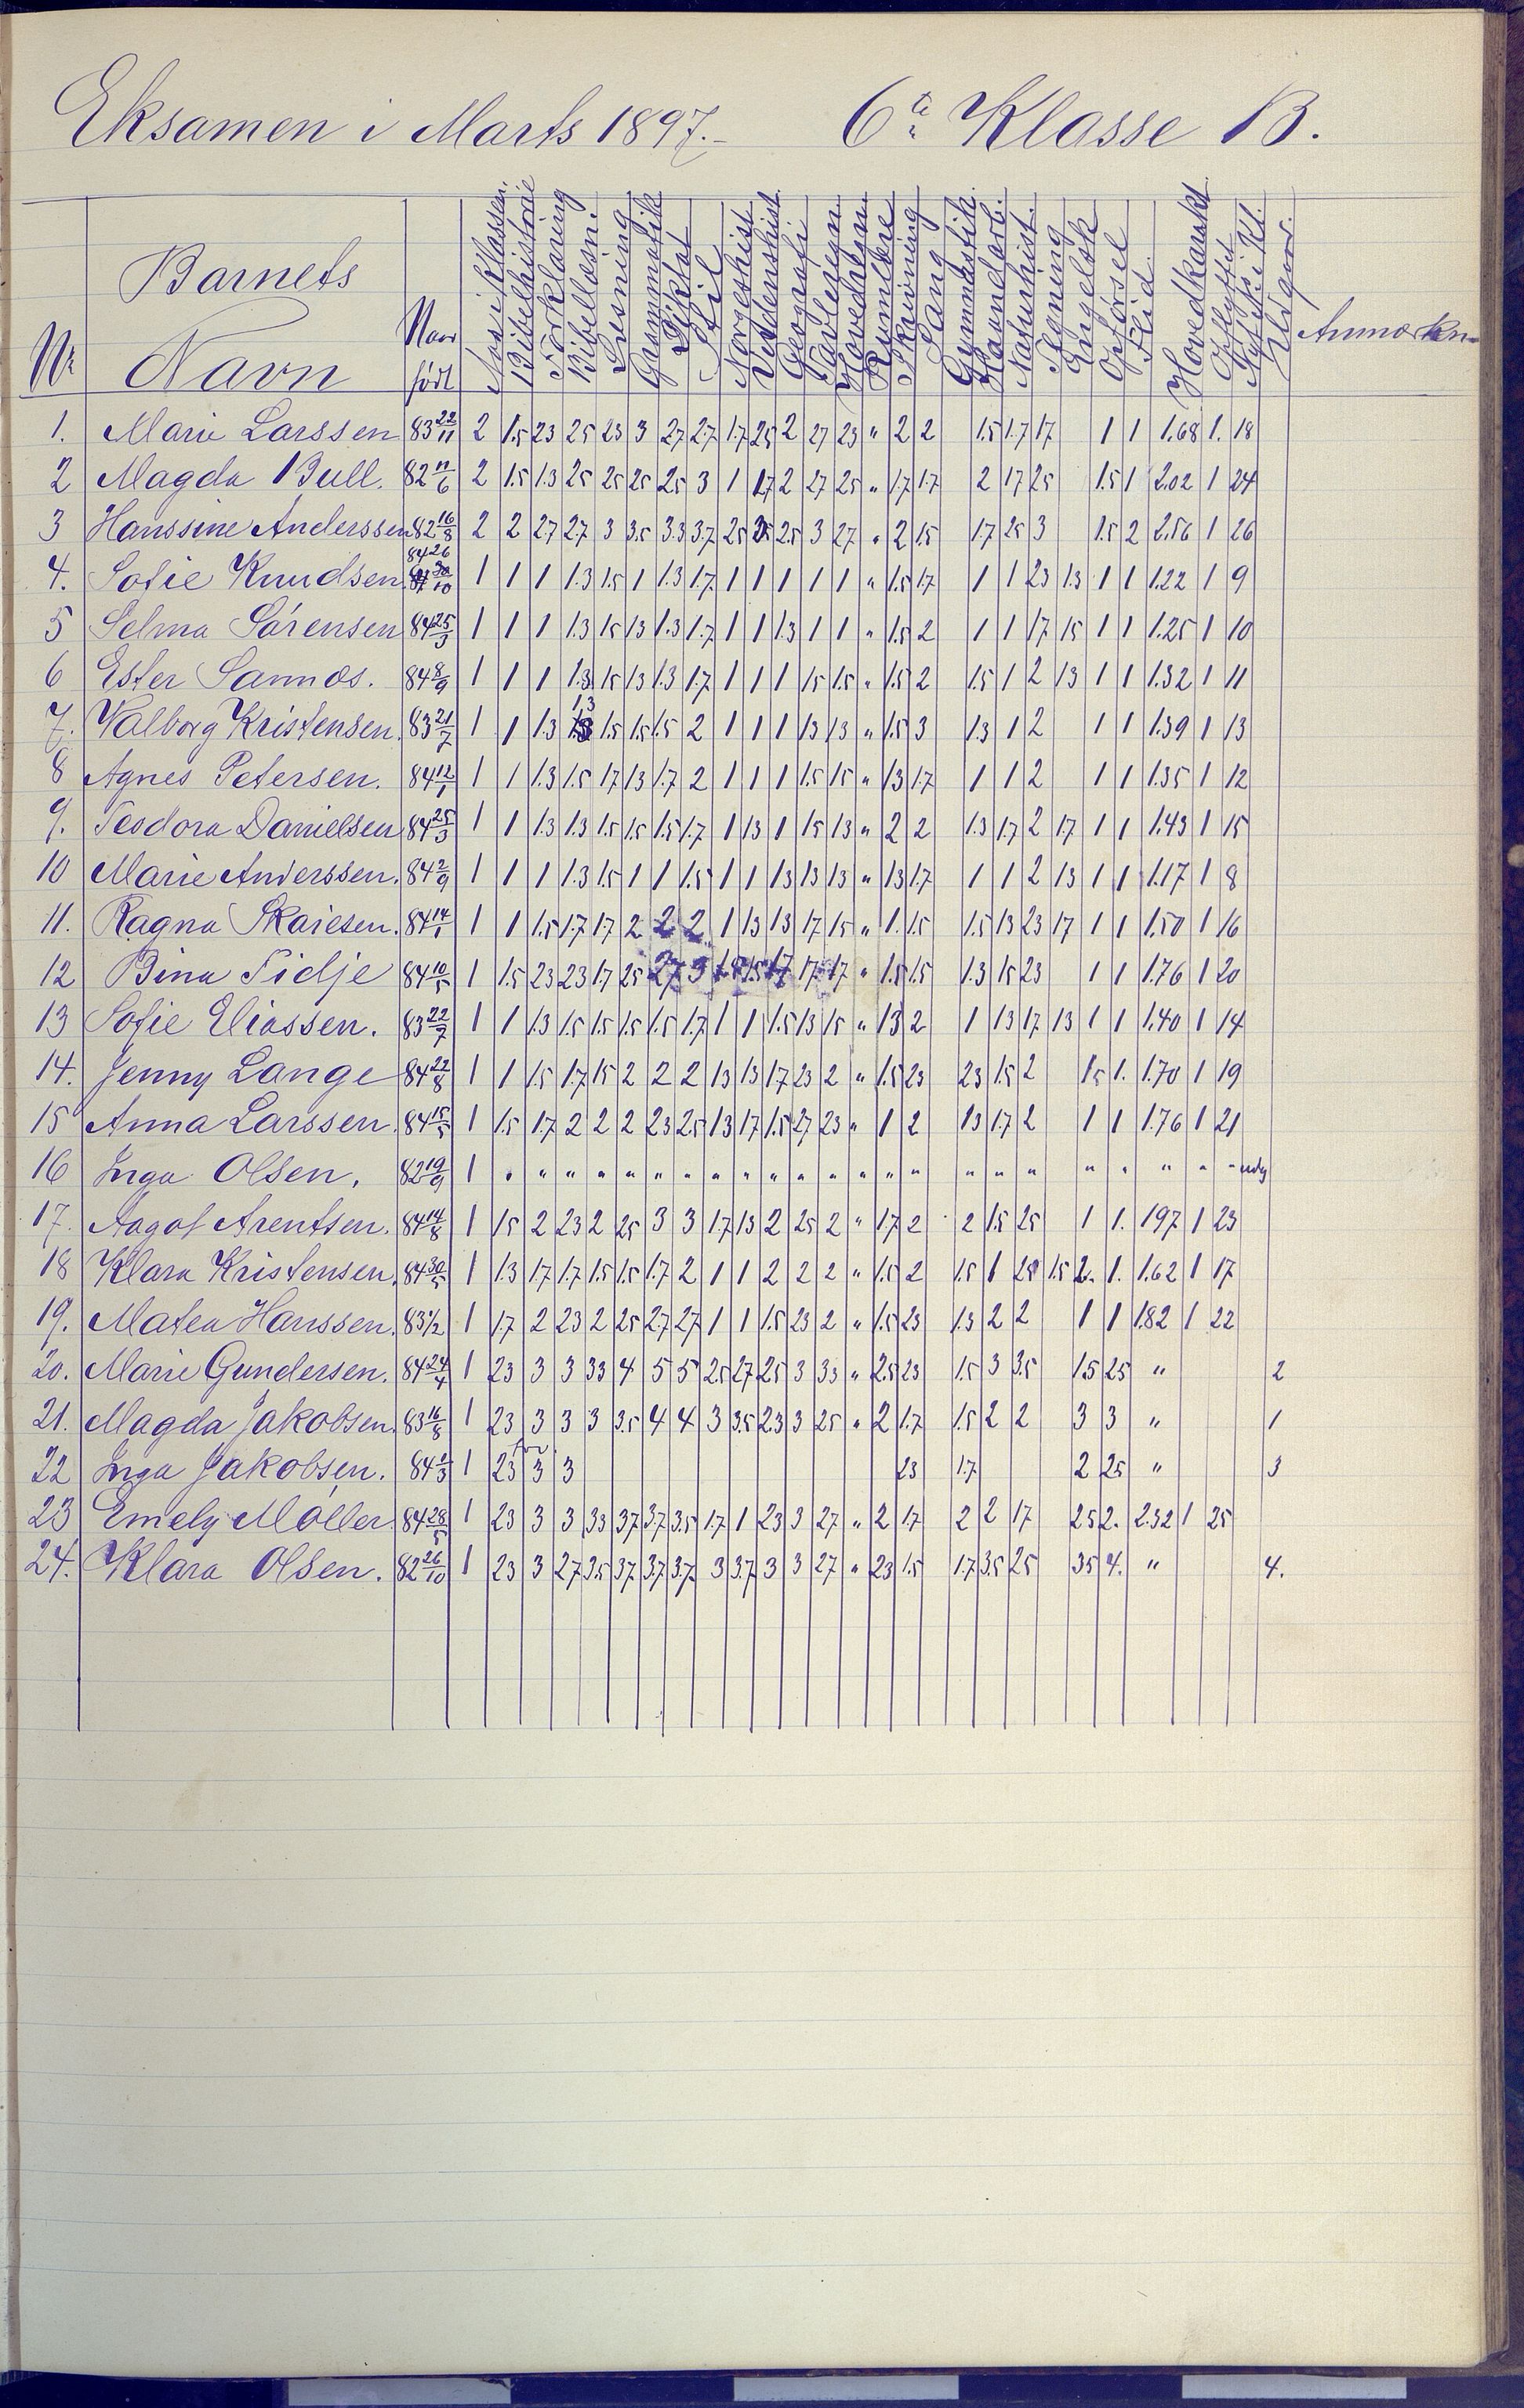 Eksamen i Marts 1897.- 6te Klasse B.
Nr Barnets Navn Naar født Aar i Klassen. Bibelhistorie Forklaring Bibellæsn. Læsning Grammatik Diktat Stil Norgeshist Verdenshist Geografi Tavleregn Hovedregn Rumlære Skrivning Sang Gymnastik Haandarb. Naturhist. Tegning Engelsk Opførsel Flid Hovedkarakt Opflyttet Nytt i Kl. Anmærkn
1. Marie Larssen 83 22/11 2 1.5 23 25 23 3 27 2.7 1.7 25 2 27 23 " 2 2 1.5 1.7 17 1 1 1.68 1. 18
2 Magda Bull. 82 11/6 2 1.5 1.3 25 25 25 25 3 1 17 2 27 25 " 1.7 1.7 2 17 25 1.5 1 2.02 1 24
3 Hanssine Anderssen 82 16/8 2 2 27 2.7 3 3.5 3.3 3.7 25 25 2.5 3 27 " 2 1.5 1.7 25 3 1.5 2 2.56 1 26
4. Sofie Knudsen 84 26/10 1 1 1 1.3 1.5 1 1.3 1.7 1 1 1 1 1 " 1.5 1.7 1 1 23 1.3 1 1 1.22 1 9
5 Selma Sørensen 84 25/3 1 1 1 1.3 15 13 1.3 1.7 1 1 1.3 1 1 " 1.5 2 1 1 17 15 1 1 1.25 1 10
6 Ester Sannæs. 84 8/9 1 1 1 1.3 15 13 1.3 1.7 1 1 1 15 1.5 " 1.5 2 1.5 1 2 13 1 1 1.32 1 11
7. Valborg Kristensen. 83 21/7 1 1 1.3 1.3 1.5 1.5 1.5 2 1 1 1 13 13 " 1.5 3 1.3 1 2 1 1 1.39 1 13
8 Agnes Petersen. 84 12/1 1 1 1.3 1.5 17 13 1.7 2 1 1 1 1.5 15 " 13 1.7 1 1 2 1 1 1.35 1 12
9. Teodora Danielsen 84 25/3 1 1 1.3 1.3 1.5 1.5 1.5 1.7 1 13 1 15 13 " 2 2 1.3 1.7 2 1.7 1 1 1.43 1 15
10 Marie Anderssen. 84 2/9 1 1 1 1.3 1.5 1 1 1.5 1 1 13 13 13 " 13 1.7 1 1 2 13 1 1 1.17 1 8
11. Ragna Skaiesen. 84 14/1 1 1 1.5 1.7 1.7 2 2 2 1 13 13 17 15 " 1. 1.5 1.5 13 23 17 1 1 1.50 1 16
12 Bina Tidje 84 10/5 1 1.5 23 23 1.7 25 27 3 1.5 1.5 17 17 17 " 1.5 1.5 1.3 15 23 1 1 1.76 1 20
13 Sofie Eliassen. 83 22/7 1 1 1.3 1.5 1.5 1.5 1.5 1.7 1 1 1.5 13 15 " 13 2 1 13 17 13 1 1 1.40 1 14
14. Jenny Lange 84 22/8 1 1 1.5 1.7 15 2 2 2 13 13 17 23 2 " 1.5 23 23 1.5 2 15 1. 1.70 1 19
15 Anna Larssen. 84 15/5 1 1.5 1.7 2 2 2 23 2.5 13 17 1.5 27 23 " 1 2 13 1.7 2 1 1 1.76 1 21
16 Inga Olsen. 82 19/9 1 " " " " " " " " " " " " " " " " " " " " " " - udg
17. Aagot Arentsen. 84 14/8 1 15 2 23 2 25 3 3 1.7 13 2 25 2 " 1.7 2 2 1.5 25 1 1. 197 1 23
18 Klara Kristensen. 84 30/5 1 1.3 1.7 1.7 1.5 1.5 1.7 2 1 1 2 2 2 " 1.5 2 1.5 1 25 1.5 2. 1. 1.62 1 17
19. Matea Hanssen. 83 1/2 1 1.7 2 23 2 25 2.7 27 1 1 1.5 23 2 " 1.5 23 1.3 2 2 1 1 182 1 22
20. Marie Gundersen. 84 24/4 1 23 3 3 33 4 5 5 25 27 25 3 33 " 2.5 23 1.5 3 3.5 1.5 25 " 2
21. Magda Jakobsen. 83 16/8 1 23 3 3 3 3.5 4 4 3 3.5 23 3 25 " 2 1.7 1.5 2 2 3 3 " 1
22 Inga Jakobsen. 84 2/3 1 23 3 3 23 1.7 2 25 " 3
23 Emely Møller 84 28/5 1 23 3 3 33 37 3.7 3.5 1.7 1 23 3 27 " 2 1.7 2 2 17 25 2. 2.32 1 25
24. Klara Olsen. 82 26/10 1 23 3 27 3.5 37 3.7 3.7 3 3.7 3 3 27 " 23 1.5 1.7 3.5 25 35 4. " 4.